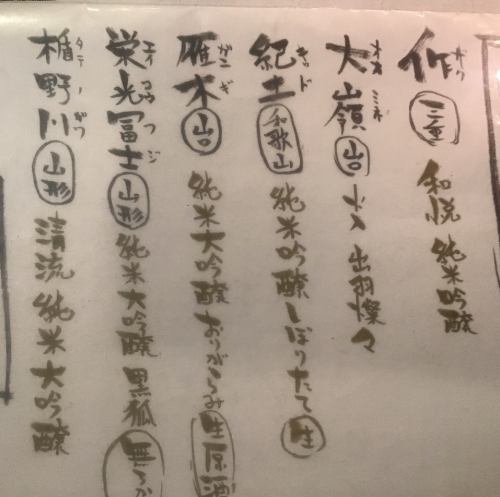 作 ザク 三重 和悦 純米吟醸
大嶺 オオミネ 山口 火入 出羽燦々
紀土 キッド 和歌山 純米吟醸 しぼりたて 生
雁木 ガンギ 山口 純米大吟醸 おりがらみ 生原酒
栄光冨士 エイコウフジ 山形 純米大吟醸 黒狐 無ろか
楯野川 タテノガワ 山形 清流 純米大吟醸